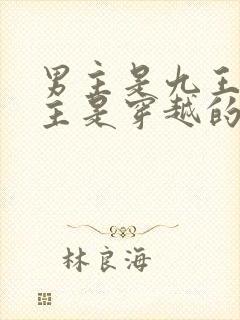 男主是九王
主是穿越的
林良海